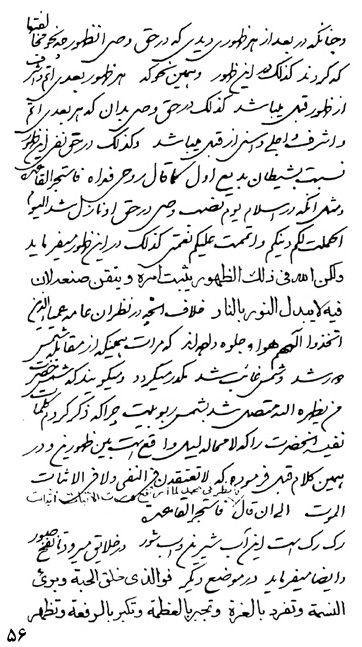 وچنانکه در بعد از هر ظهوری دیدی که در حق وصی آن ظهور چه نحو مخالفتها
که کردند کذلک در این ظهور وبهمین نحو که هر ظهور بعدی اتم و اشرف
از ظهور قبل میباشد کذلک در حق وصی بدان که هر بعدی اتم
واشرف واعلی واسنی از قبل میباشد وکذلک در حق نفی این ظهور
نسبت بشیطان بدیع اول کما قال روحی فداه فاستجر القاعده
ومثل آنکه در اسلام یوم نصب وصی در حق او نازل شد الیوم
اکملت لکم دینکم واتممت علیکم نعمتی کذلک در این ظهور میفرماید
ولکن الله فی ذلک الظهور یثبت امره ویتقن صنعه لان
فیه لا یبدل النور بالنار خلاف آنچه در نظر آن عامه عمیاء الذین
اتخذوا آلههم هوا و جلوه داده‌اند که مرات همینکه از مقابل شمس
رد شد وشمس غائب شد مکدر میگردد ومیگویند که شمس حضرت
من یظهره الله متصل شد بشمس ربوبیت چرا که ذکر کردم کلمات
نفی آنحضرت را که لا محاله لیل واقع هست بین ظهورین و در
همین کلام قبل فرموده که لا تعتقدن فی النفی ولا فی الاثبات
الموت الی ان قال فاستجر القاعده
رگ رگ است این آب شیرین وآب شور در خلایق میرود تا نفخ صور
وایضا میفرماید در موضع دیگر فوالذی خلق الحبة وبرئ
النسمة وتفرد بالعزة وتجبر بالعظمة وتکبر بالرفعة وتظهر
۵۶